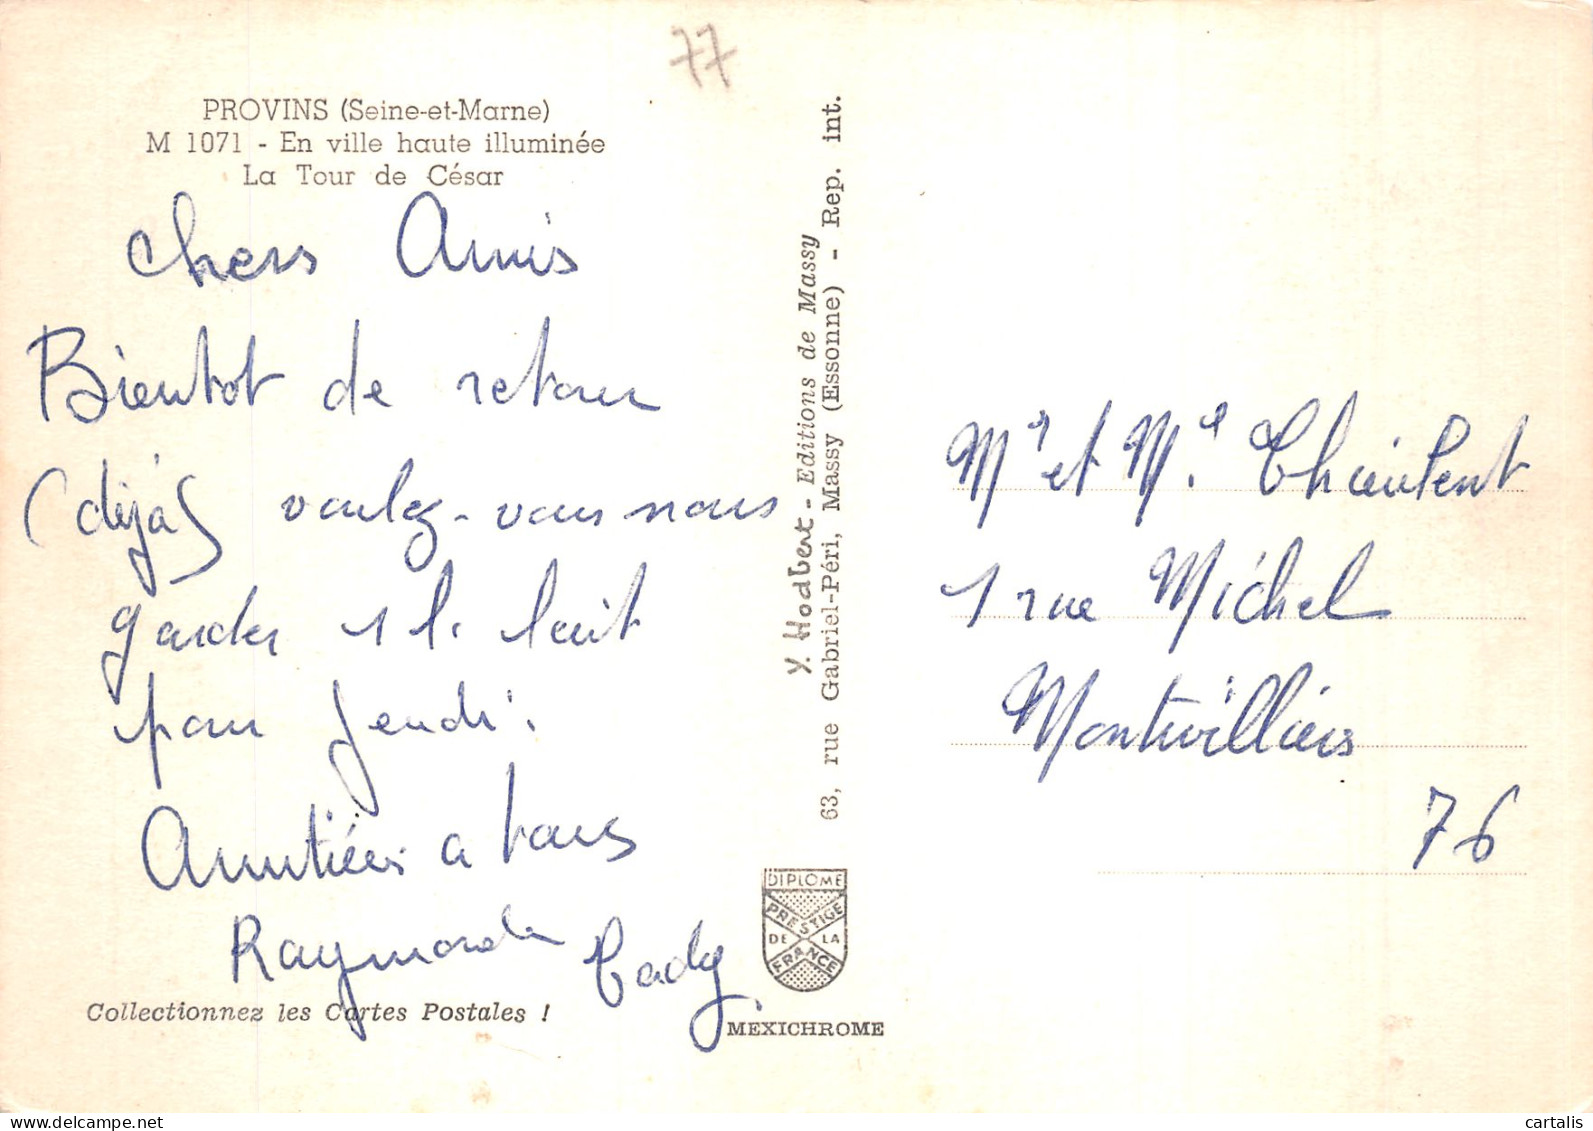 77
PROVINS (Seine-et-Marne)
M 1071 - En ville haute illuminée
La Tour de César
Chers Amis
Bientot de retour
(déjà) voulez-vous nous
garder 1 l. lait
pour jeudi.
Amitiés a tous
Raymonde Cady
Collectionnez les Cartes Postales !
Y. Hodbert - Editions de Massy
63, rue Gabriel-Péri, Massy (Essonne) - Rep. int.
DIPLOME
PRESTIGE
DE LA
FRANCE
MEXICHROME
Mr et Me
1 rue Michel
Montivilliers
76
cartalis